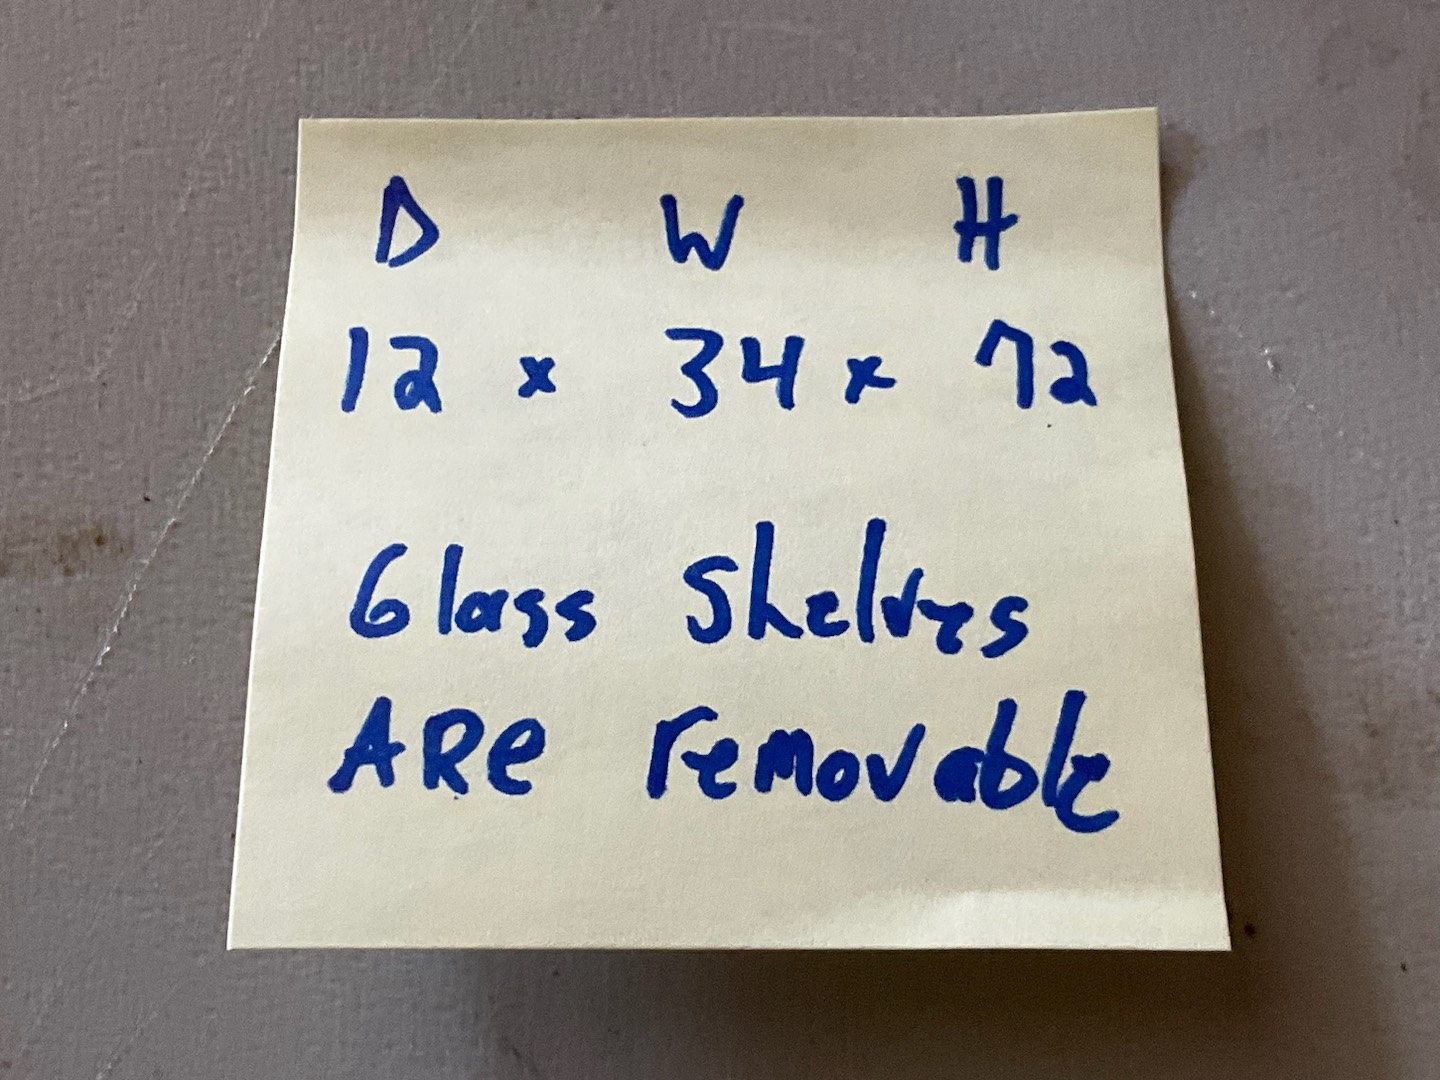 D W H
12 x 34 x 72
Glass Shelves
ARe removable